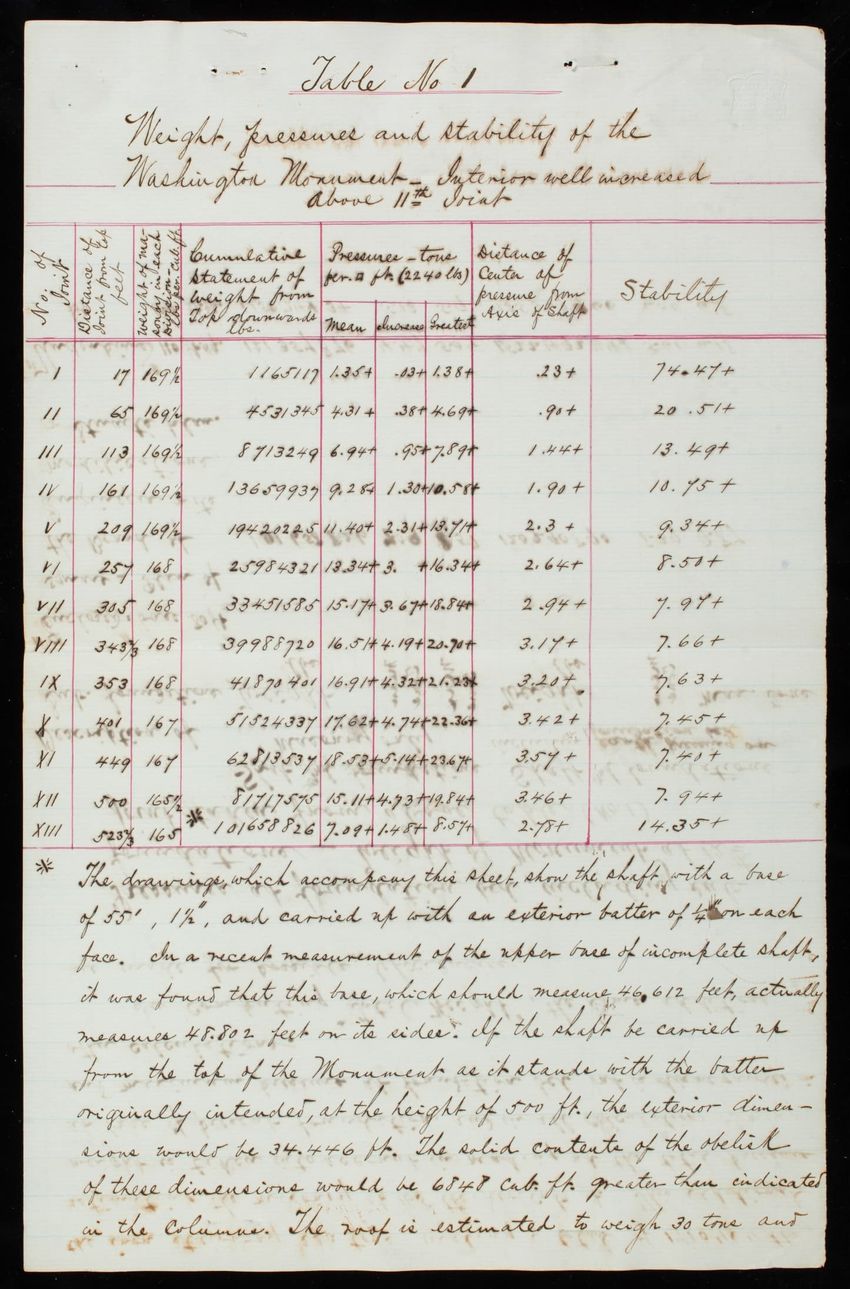 Table No 1
Weight, pressures and stability of the
Washington Monument – Interior well increased
above 11th Joint
No. of Joint | Distance of Joint from top feet | Weight of masonry in each Division – lbs per cub. ft. | Cumulative statement of weight from Top downwards lbs. | Pressures – tons per □ ft. (2240 lbs) Mean | Increase | Greatest | Distance of Center of pressure from Axis of Shaft | Stability
I 17 169½ 1165117 1.35+ .03+ 1.38+ .23+ 74.47+
II 65 169½ 4531345 4.31+ .38+ 4.69+ .90+ 20.51+
III 113 169½ 8713249 6.94+ .95+ 7.89+ 1.44+ 13.49+
IV 161 169½ 13659937 9.28+ 1.30+ 10.58+ 1.90+ 10.75+
V 209 169½ 19420225 11.40+ 2.31+ 13.71+ 2.3+ 9.34+
VI 257 168 25984321 13.34+ 3.+ 16.34+ 2.64+ 8.50+
VII 305 168 33451585 15.17+ 3.67+ 18.84+ 2.94+ 7.97+
VIII 343⅔ 168 39988720 16.51+ 4.19+ 20.70+ 3.17+ 7.66+
IX 353 168 41870401 16.91+ 4.32+ 21.23+ 3.20+ 7.63+
X 401 167 51524337 17.62+ 4.74+ 22.36+ 3.42+ 7.45+
XI 449 167 62813537 18.53+ 5.14+ 23.67+ 3.57+ 7.40+
XII 500 165½ 81717575 15.11+ 4.73+ 19.84+ 3.46+ 7.94+
XIII 523⅔ 165 * 101658826 7.09+ 1.48+ 8.57+ 2.78+ 14.35+
* The drawings, which accompany this sheet, show the shaft with a base
of 55', 1½", and carried up with an exterior batter of ¼" on each
face. In a recent measurement of the upper base of incomplete shaft,
it was found that this base, which should measure 46.612 feet, actually
measures 48.802 feet on its sides. If the shaft be carried up
from the top of the Monument as it stands with the batter
originally intended, at the height of 500 ft., the exterior dimen-
sions would be 34.446 ft. The solid contents of the obelisk
of these dimensions would be 6848 cub. ft. greater than indicated
in the columns. The roof is estimated to weigh 30 tons and